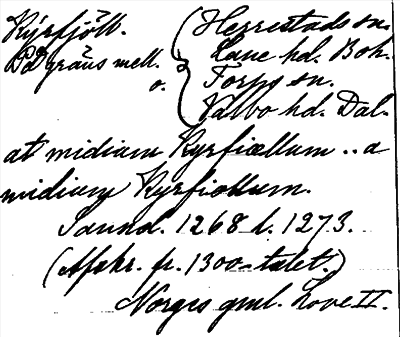 Kyrfjöll. Herrestads sn.
På gräns mell. Lane hd. Boh.
o. Torps sn.
Valbo hd. Dal.
at midium Kyrfiællum .. a
midium Kyrfiællum.
Sannol. 1268 l. 1273.
(Afskr. fr. 1300-talet.)
Norges gml. Love II.